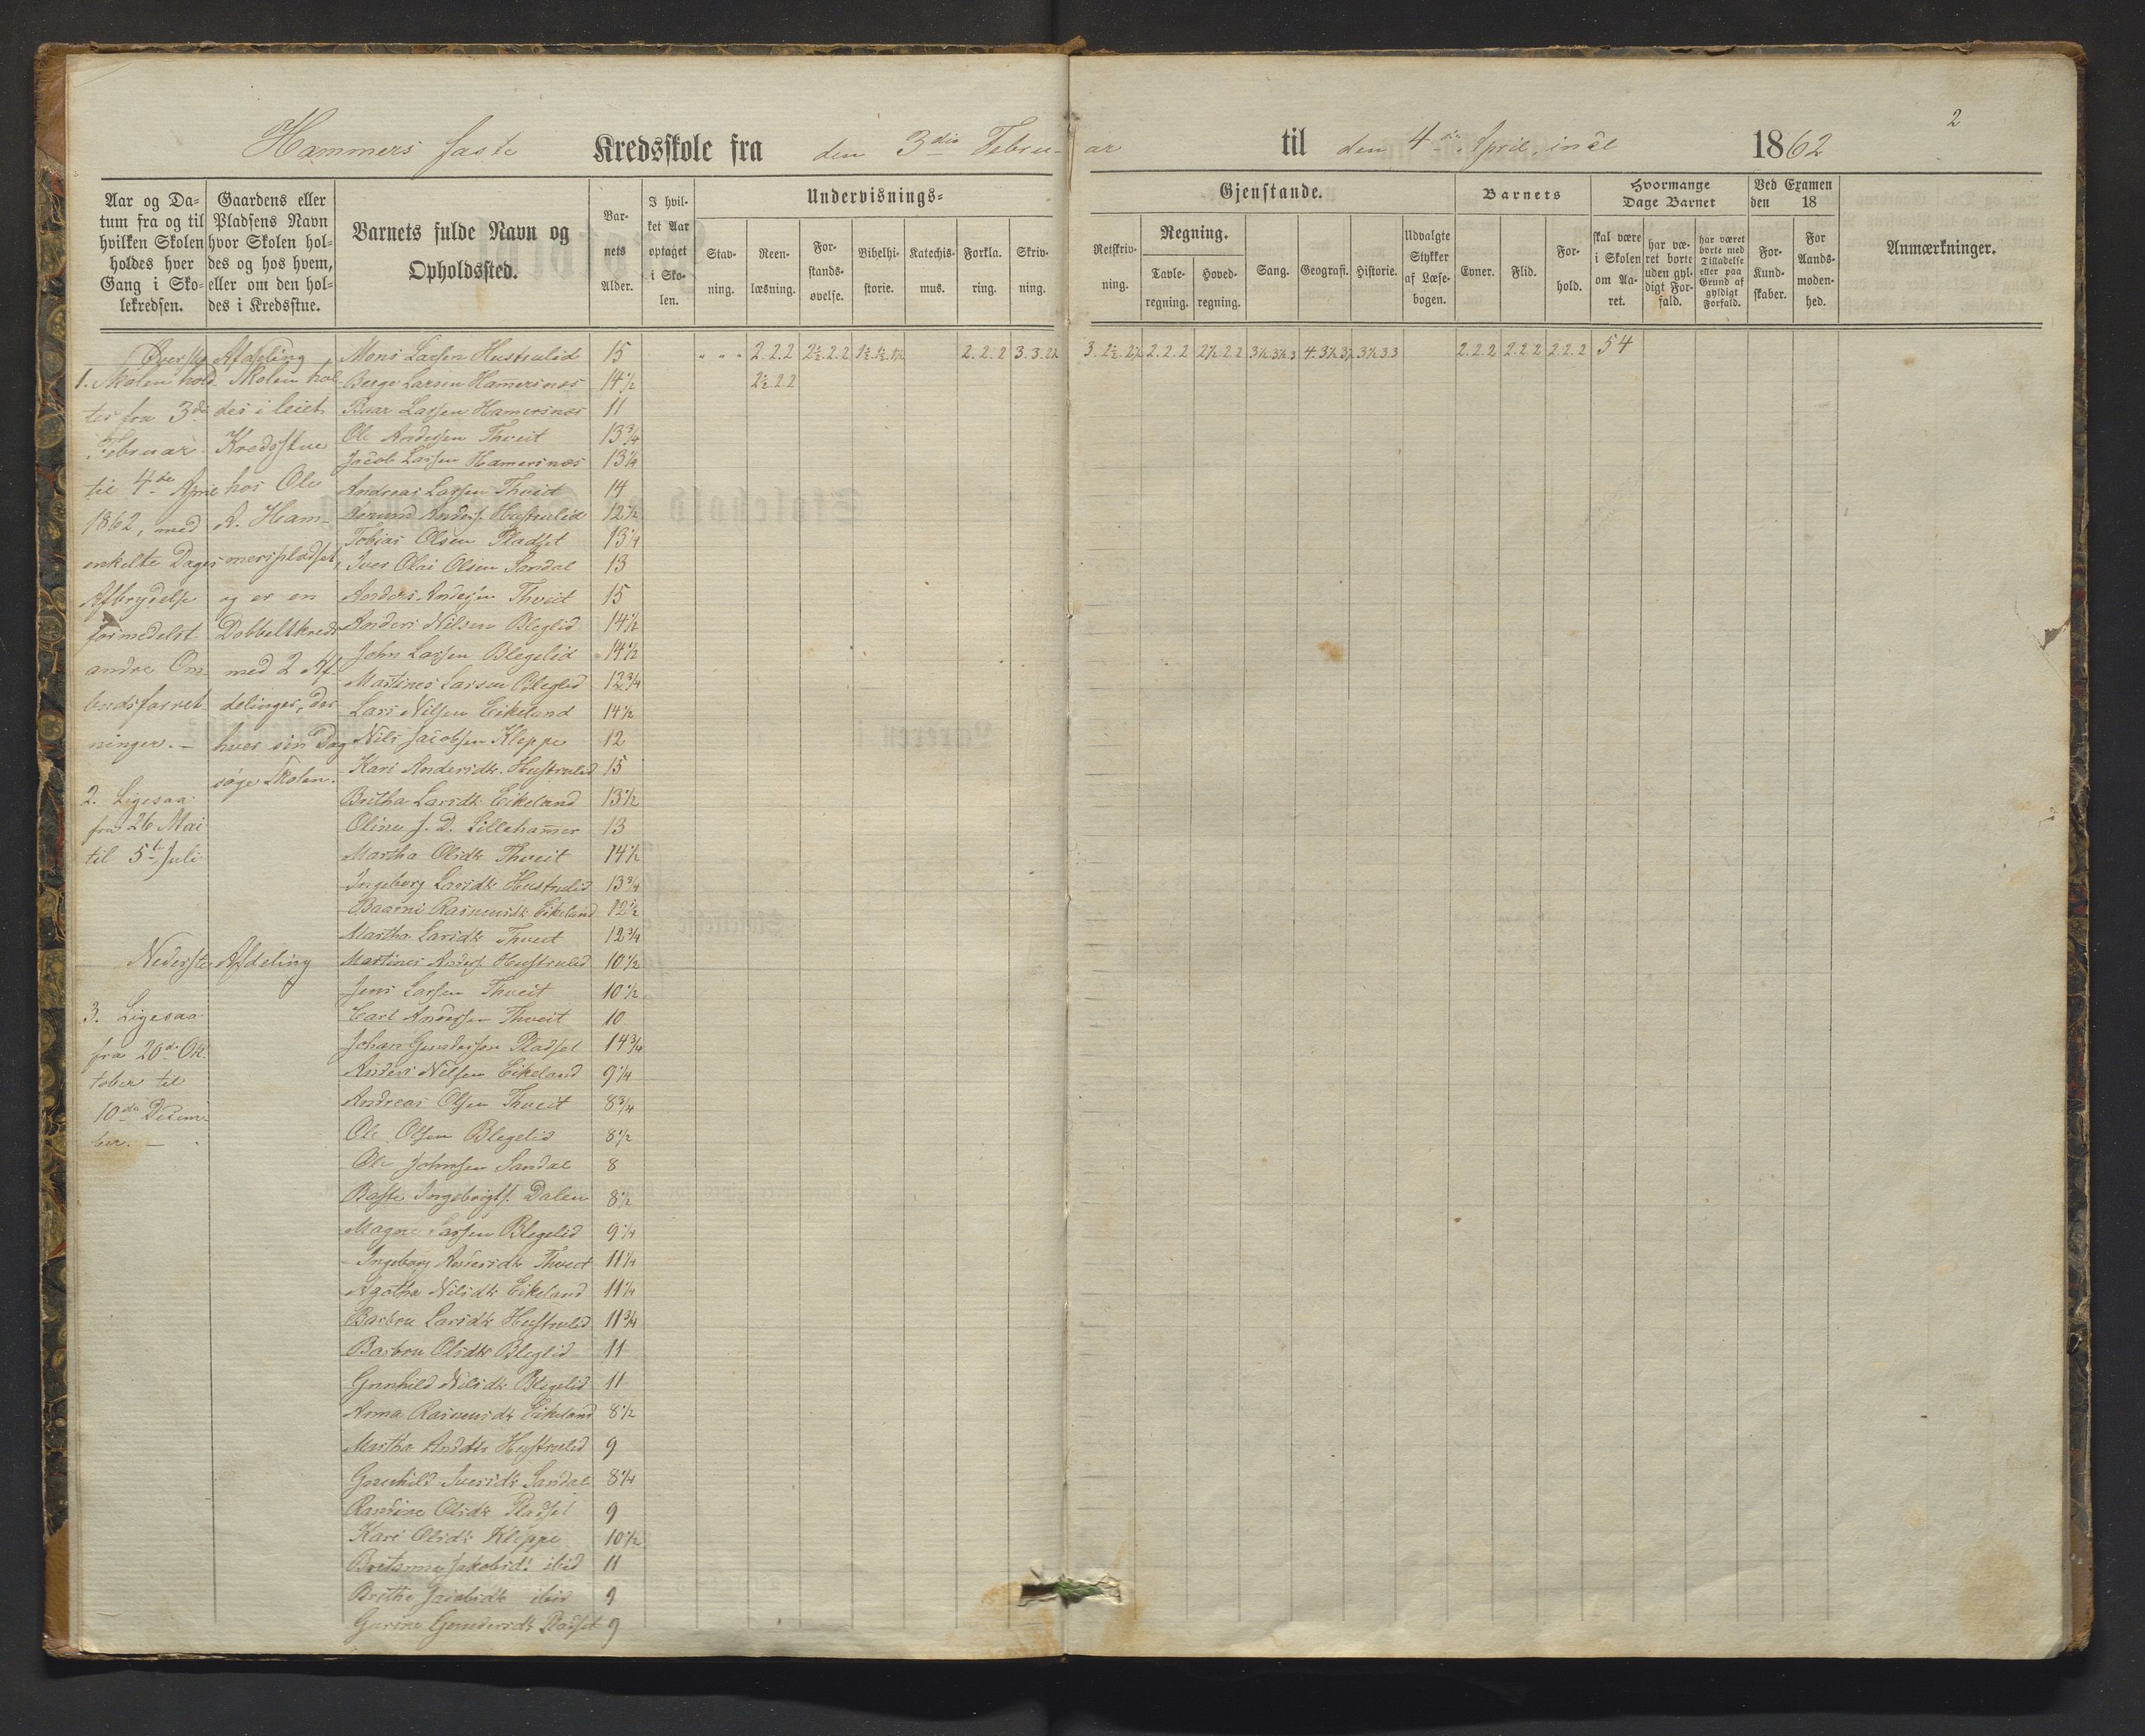 2
Hammers faste Kredsskole fra den 3die Februar til den 4de April incl 1862
Aar og Datum fra og til hvilken Skolen holdes hver Gang i Skolekredsen.
Gaardens eller Pladsens Navn hvor Skolen holdes og hos hvem, eller om den holdes i Kredsstue.
Barnets fulde Navn og Opholdssted.
Barnets Alder.
I hvilket Aar optaget i Skolen.
Undervisnings-
Stavning.
Reenlæsning.
Forstandsøvelse.
Bibelhistorie.
Katechismus.
Forklaring.
Skrivning.
Gjenstande.
Retskrivning.
Regning.
Tavleregning.
Hovedregning.
Sang.
Geografi.
Historie.
Udvalgte Stykker af Læsebogen.
Barnets
Evner.
Flid.
Forhold.
Hvormange Dage Barnet
skal være i Skolen om Aaret.
har været borte uden gyldigt Forfald.
har været borte med Tilladelse eller paa Grund af gyldigt Forfald.
Ved Examen den 18
For Kundskaber.
For Aandsmodenhed.
Anmærkninger.
Øverste Afdeling
1. Skolen hold-
tes fra 3die
Februar
til 4de April
1862, med
enkelte Dages
Afbrydelse
formedelst
andre Om-
budsforret-
ninger. –
2. Ligesaa
fra 26 Mai
til 5te Juli
Nederste Afdeling
3. Ligesaa
fra 20de Ok-
tober til
10de Decem-
ber. –
Skolen hol-
des i leiet
Kredsstue
hos Ole
A. Ham-
merspladset,
og er en
Dobbeltkreds
med 2 Af-
delinger, der
hver sin Dag
søge Skolen.
Mons Larsen Hustrulid 15 " " " 2.2.2 2½.2.2 1½.1½.1½ 2.2.2 3.3.2½ 3.2½.2½ 2.2.2 2½.2.2 3½.3½.3 4.3½.3½ 3½.3.3 2.2.2 2.2.2 2.2.2 54
Berge Larsen Hamersnæs 14½ 2½.2.2
Baar Larsen Hamersnæs 11
Ole Andersen Thveit 13¾
Jacob Larsen Hamersnæs 13¼
Andreas Larsen Thveit 14
Anders. Hustrulid 12½
Tobias Olsen Pladset 13¼
Iver Olai Olsen Sandal 13
Anders Andersen Thveit 15
Anders Nilsen Bleglid 14½
John Larsen Blegelid 14½
Martines Larsen Bleglid 12¾
Lars Nilsen Eikeland 14½
Nils Jacobsen Kleppe 12
Kari Andersdtr. Hustrulid 15
Britha Larsdtr Eikeland 13½
Oline J. D. Lillehammer 13
Martha Olsdtr Thveit 14½
Ingeborg Larsdtr Hustrulid 13¾
Rasmusdtr Eikeland 12½
Martha Larsdtr Thveit 12¾
Martines Anders. Hustrulid 10½
Jens Larsen Thveit 10½
Carl Andersen Thveit 10
Johan Gundersen Pladset 14¾
Anders Nilsen Eikeland 9¼
Andreas Olsen Thveit 8¾
Ole Olsen Blegelid 8½
Ole Johnsen Sandal 8
Baste Ingebrigts. Dalen 8½
Magne Larsen Blegelid 9¼
Ingeborg Andersdtr Thveit 11¼
Agatha Nilsdtr Eikeland 11¼
Barbru Larsdtr Hustrulid 11¾
Barbru Olsdtr Bleglid 11
Gunhild Nilsdtr Blegelid 11
Anna Rasmusdtr Eikeland 8½
Martha Anddtr Hustrulid 9
Gunhild Iversdtr Sandal 8¼
Randine Olsdtr Pladset 9
Kari Olsdtr Kleppe 10½
Jakobsdt ibid 11
Brithe Jacobsdtr ibid 9
Gurine Gundersdtr Pladset 9